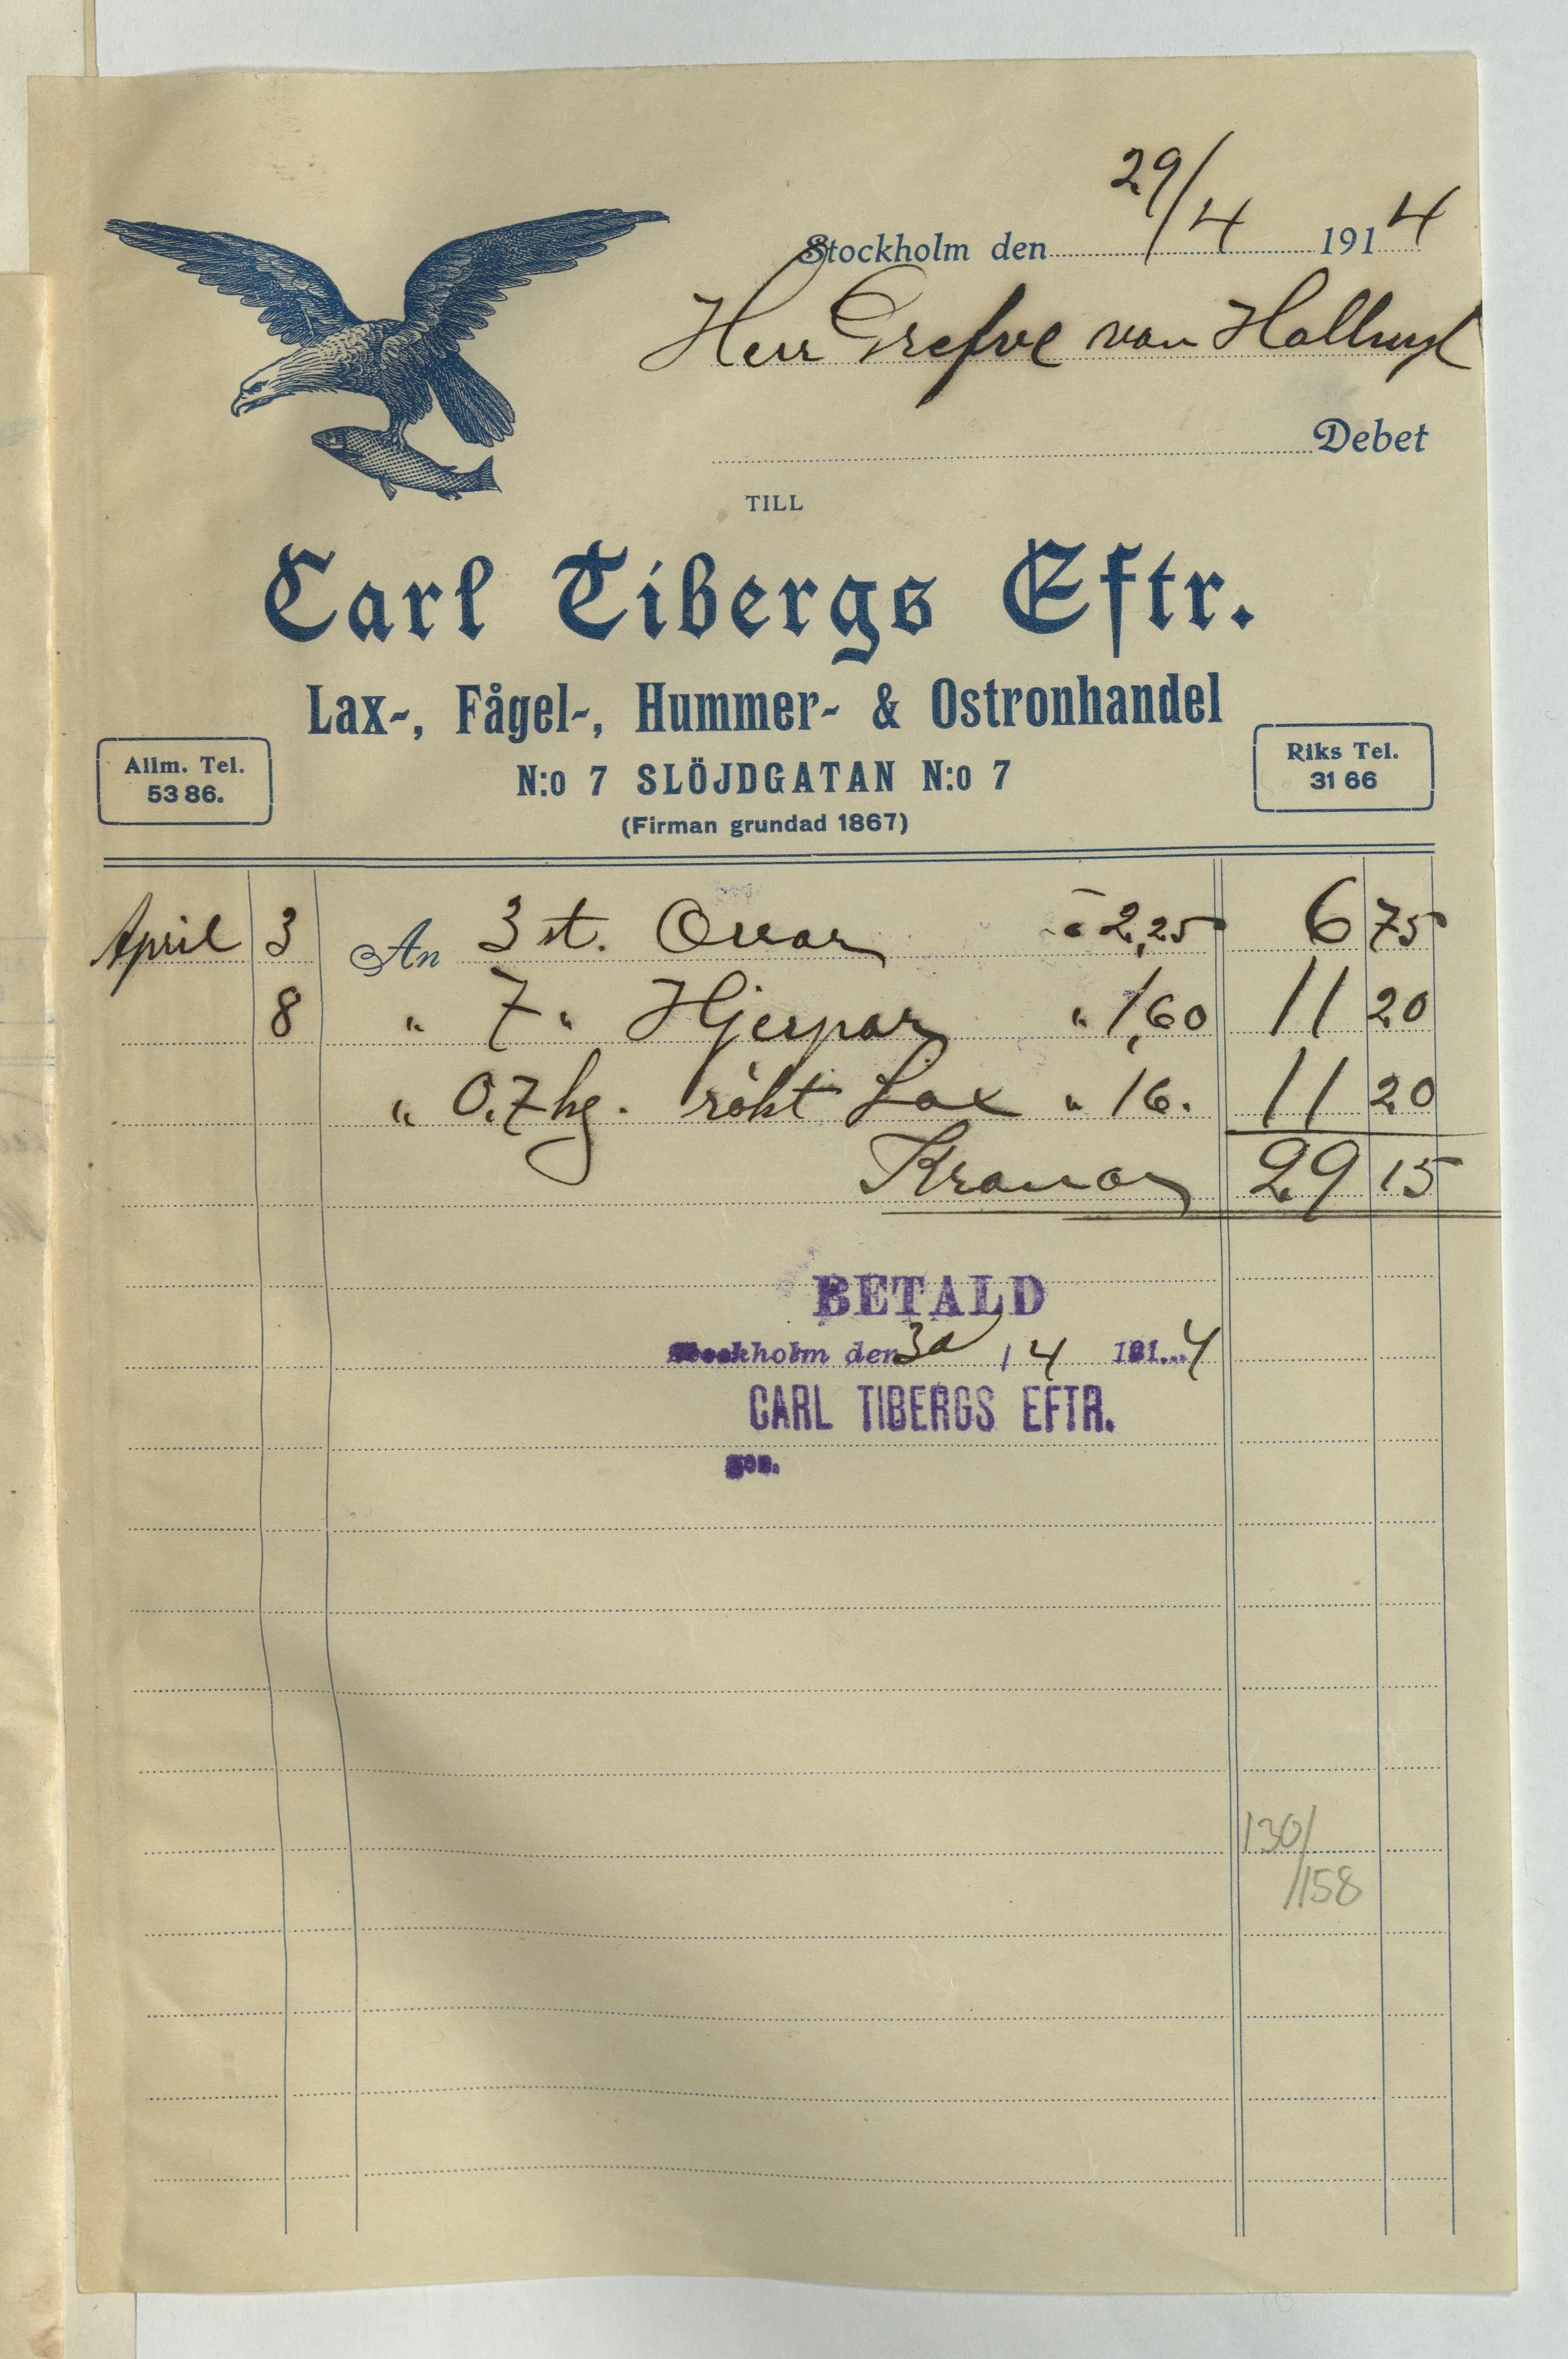 Stockholm den 29/4 1914
Herr Grefve von Hallwyl
Debet
TILL
Carl Tibergs Eftr.
Lax-, Fågel-, Hummer- & Ostronhandel
Allm. Tel. 53 86.
N:o 7 SLÖJDGATAN N:o 7
Riks Tel. 31 66
(Firman grundad 1867)
April 3 An 3 st. Orrar à 2,25 6 75
8 " 7 " Hjerpar " 1,60 11 20
" 0.7 kg. rökt Lax " 16. 11 20
Kronor 29 15
BETALD
Stockholm den 30 / 4 191...4
CARL TIBERGS EFTR.
130/
/158